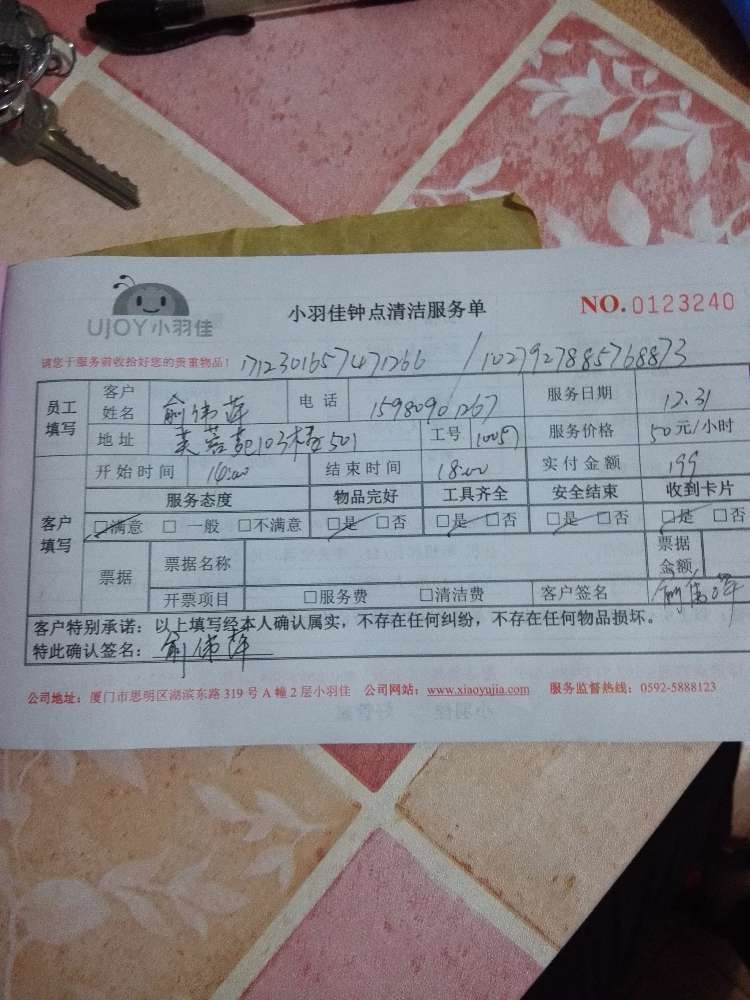 UJOY小羽佳
小羽佳钟点清洁服务单
NO.0123240
请您于服务前收拾好您的贵重物品!
1712301657471266 / 1027927885768873
员工填写 客户姓名 俞伟萍 电话 15980901267 服务日期 12.31
地址 芙蓉苑103栋501 工号 10057 服务价格 50元/小时
客户填写 开始时间 14:00 结束时间 18:00 实付金额 199
服务态度 物品完好 工具齐全 安全结束 收到卡片
☑满意 □一般 □不满意 ☑是 □否 ☑是 □否 ☑是 □否 ☑是 □否
票据 票据名称 票据金额
开票项目 □服务费 □清洁费 客户签名 俞伟萍
客户特别承诺：以上填写经本人确认属实，不存在任何纠纷，不存在任何物品损坏。
特此确认签名：俞伟萍
公司地址：厦门市思明区湖滨东路319号A幢2层小羽佳 公司网站：www.xiaoyujia.com 服务监督热线：0592-5888123